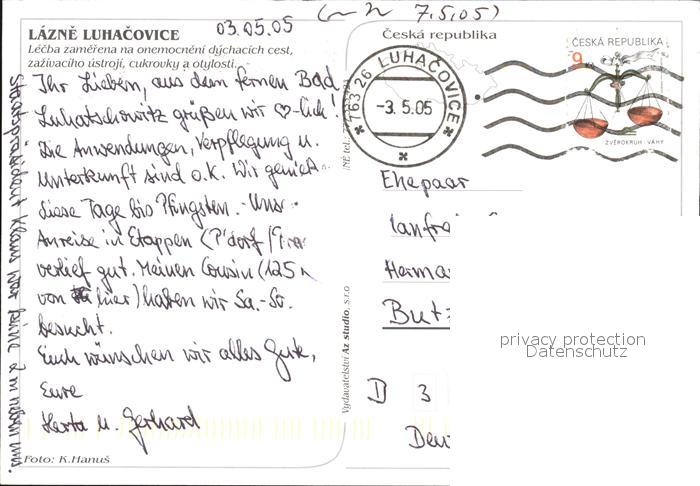 03.05.05
(~ n 7.5.05)
LÁZNĚ LUHAČOVICE
Léčba zaměřena na onemocnění dýchacích cest,
zažívacího ústrojí, cukrovky a otylosti.
Česká republika
763 26 LUHAČOVICE
-3.5.05
ČESKÁ REPUBLIKA
9
ZVĚROKRUH · VÁHY
Ihr Lieben, aus dem fernen Bad
Luhatschowitz grüßen wir ♡-lich!
Die Anwendungen, Verpflegung u.
Unterkunft sind o.k. Wir genieß
diese Tage bis Pfingsten. Uns
Anreise in Etappen (P'dorf /
verlief gut. Meinen Cousin (125
von hier) haben wir Sa.-So.
besucht.
Euch wünschen wir alles Gute,
Eure
Herta u. Gerhard
Staatspräsident Klaus war keine 2 m neben uns.
Foto: K.Hanuš
Vydavatelství Az studio, s.r.o
Ehepaar
Manfre
Herma
But
D 3
Deu
privacy protection
Datenschutz